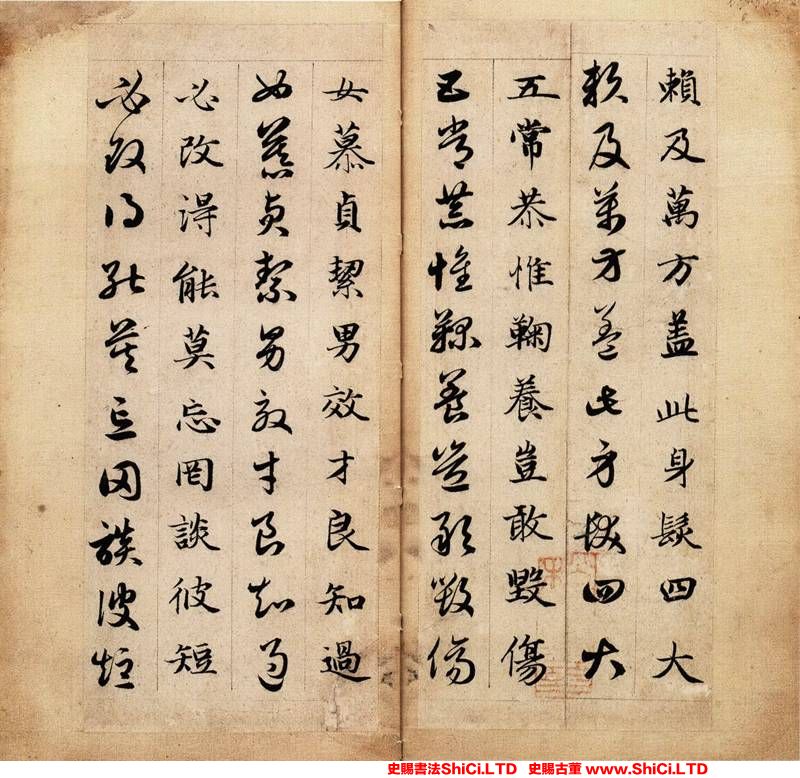 賴及萬方盖此身髮四大
賴及萬方盖此身髮四大
五常恭惟鞠養豈敢毀傷
五常恭惟鞠養豈敢毀傷
女慕貞絜男效才良知過
女慕貞絜男效才良知過
必改得能莫忘罔談彼短
必改得能莫忘罔談彼短
史賜書法ShiCi.LTD 史賜古董 www.ShiCi.LTD